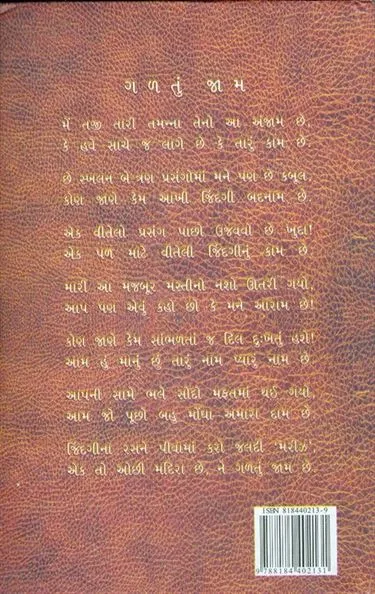 ગળતું જામ
મેં તજી તારી તમન્ના તેનો આ અંજામ છે,
કે હવે સાચે જ લાગે છે કે તારું કામ છે.
છે સ્ખલન બે ત્રણ પ્રસંગોમાં મને પણ છે કબૂલ,
કોણ જાણે કેમ આખી જિંદગી બદનામ છે.
એક વીતેલો પ્રસંગ પાછો ઉજવવો છે ખુદા!
એક પળ માટે વીતેલી જિંદગીનું કામ છે.
મારી આ મજબૂર મસ્તીનો નશો ઊતરી ગયો,
આપ પણ એવું કહો છો કે મને આરામ છે!
કોણ જાણે કેમ સાંભળતાં જ દિલ દુઃખતું હશે!
આમ હું માનું છું તારું નામ પ્યારું નામ છે.
આપની સામે ભલે સોદો મફતમાં થઈ ગયો,
આમ જો પૂછો બહુ મોંઘા અમારા દામ છે.
જિંદગીના રસને પીવામાં કરો જલદી 'મરીઝ',
એક તો ઓછી મદિરા છે, ને ગળતું જામ છે.
ISBN 818440213-9
9 788184 402131